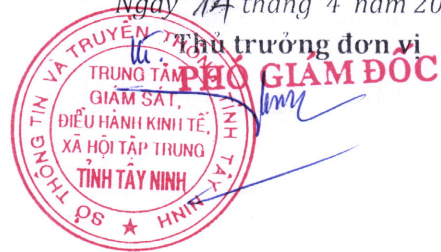 Ngày 14 tháng 4 năm 20
Thủ trưởng đơn vị
PHÓ GIÁM ĐỐC
SỞ THÔNG TIN VÀ TRUYỀN THÔNG TỈNH TÂY NINH
TRUNG TÂM
GIÁM SÁT,
ĐIỀU HÀNH KINH TẾ,
XÃ HỘI TẬP TRUNG
TỈNH TÂY NINH